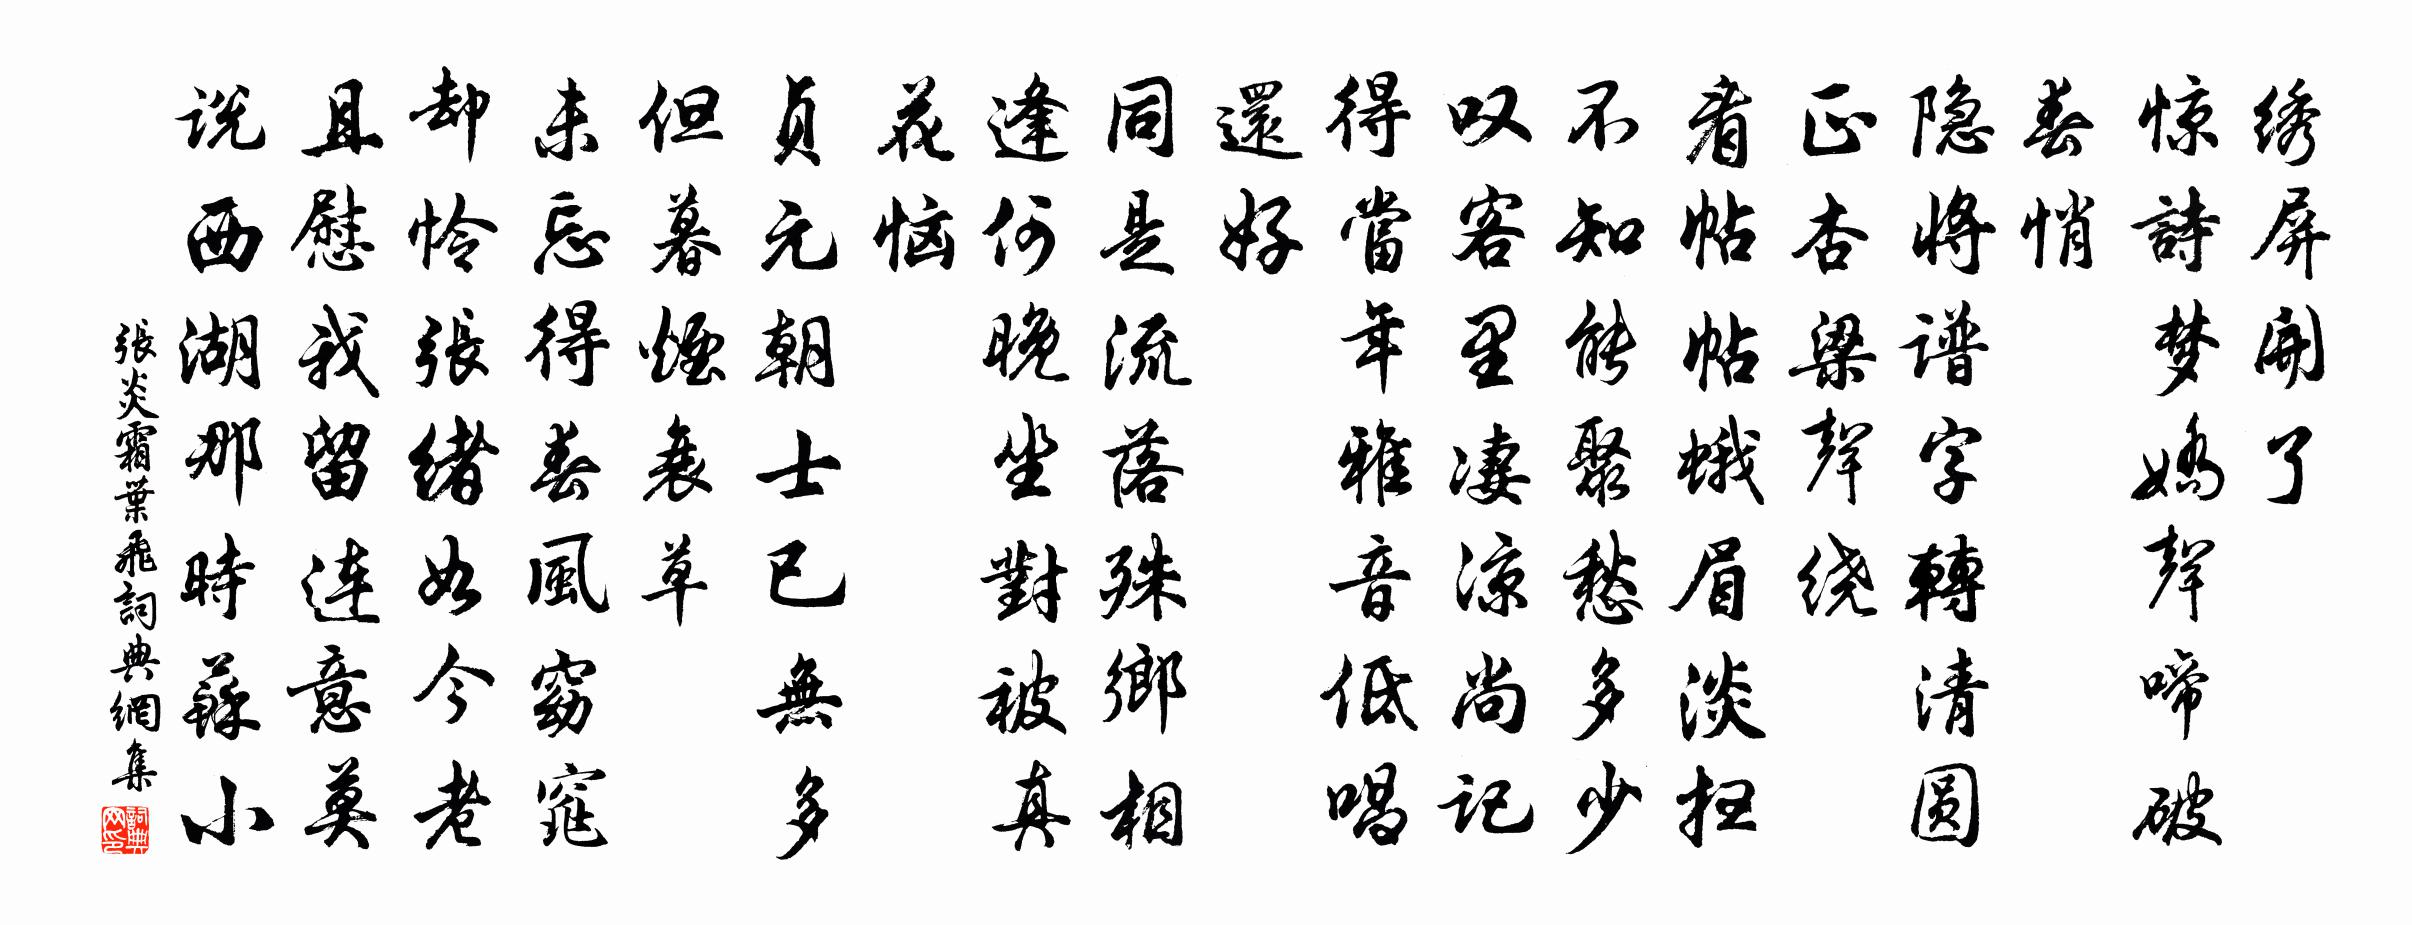 绣屏開了
惊詩梦嬌聲啼破
春悄
隐将谱字轉清圆
正杏梁聲绕
看帖帖蛾眉淡扫
不知能聚愁多少
叹客里凄凉尚记
得當年雅音低唱
還好
同是流落殊鄉相
逢何晚坐對被真
花恼
貞元朝士已無多
但暮煙衰草
未忘得春風窈窕
却怜張緒如今老
且慰我留连意莫
说西湖那時蘇小
張炎霜葉飛詞典網集
詞典网印